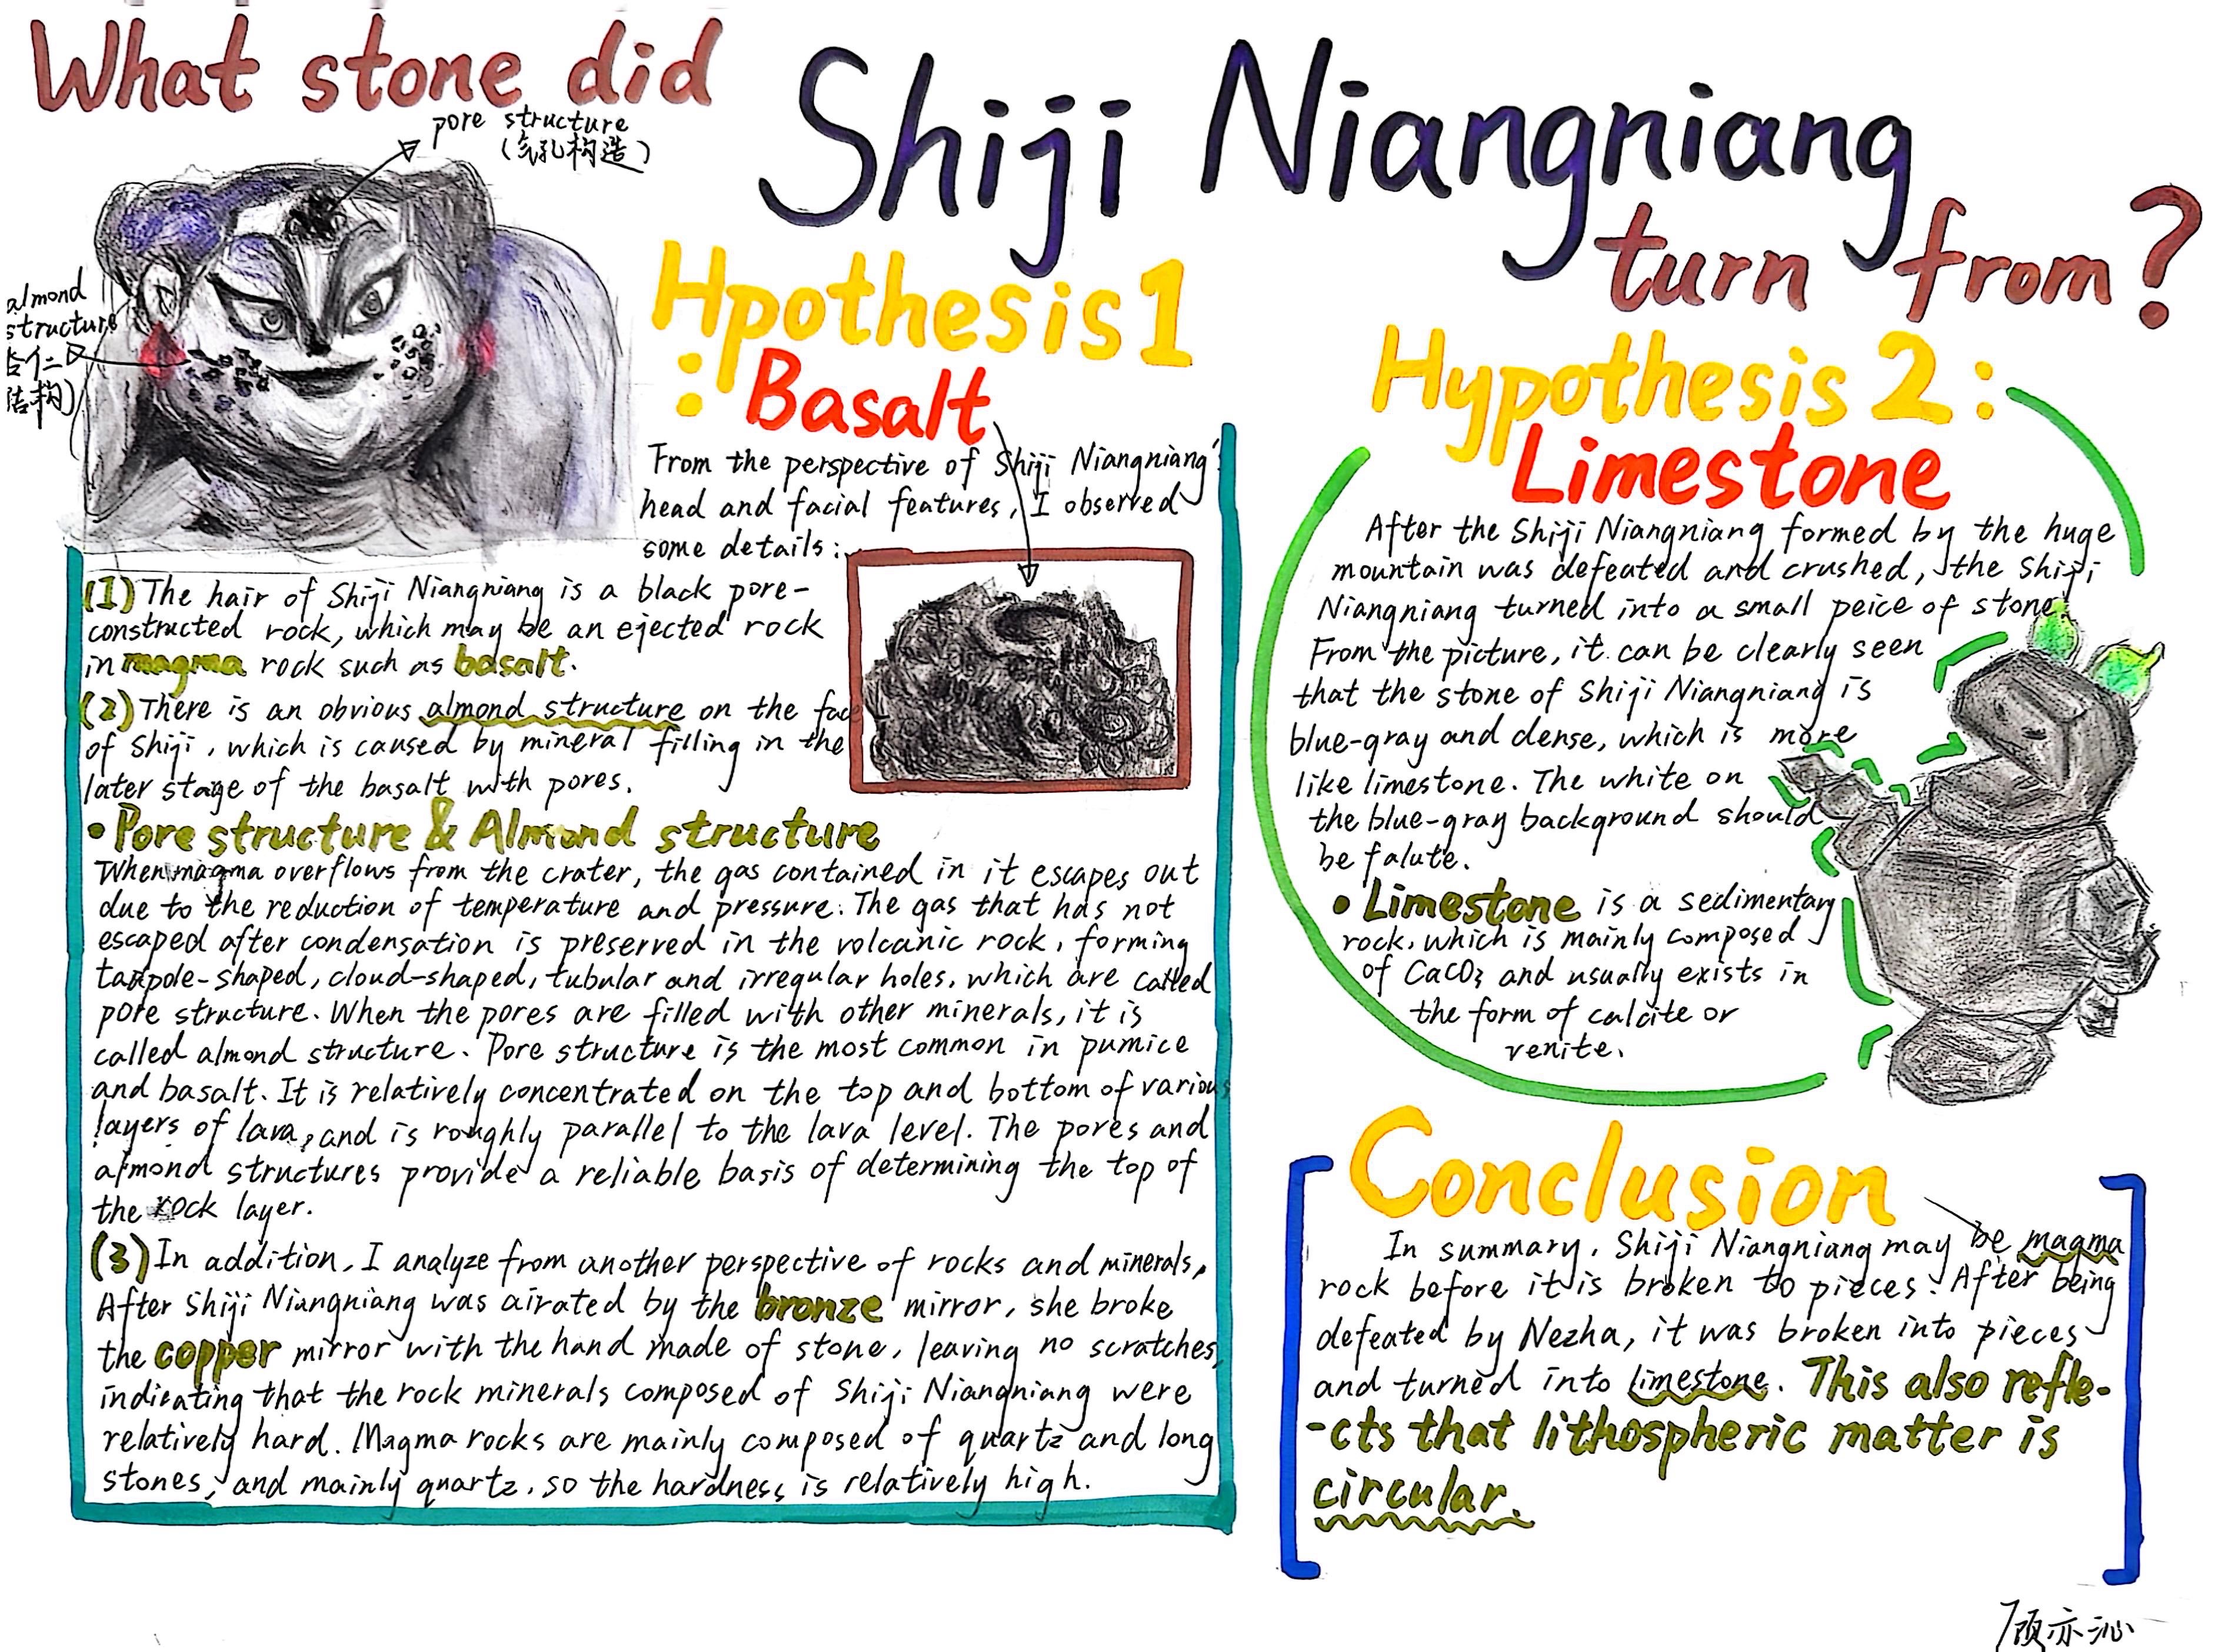 What stone did
Shiji Niangniang
turn from?
pore structure
(气孔构造)
almond
structure
杏仁
结构)
Hpothesis 1
: Basalt
From the perspective of Shiji Niangniang'
head and facial features, I observed
some details:
(1) The hair of Shiji Niangniang is a black pore-
constructed rock, which may be an ejected rock
in magma rock such as basalt.
(2) There is an obvious almond structure on the face
of Shiji, which is caused by mineral filling in the
later stage of the basalt with pores.
• Pore structure & Almond structure
When magma overflows from the crater, the gas contained in it escapes out
due to the reduction of temperature and pressure. The gas that has not
escaped after condensation is preserved in the volcanic rock, forming
tadpole-shaped, cloud-shaped, tubular and irregular holes, which are called
pore structure. When the pores are filled with other minerals, it is
called almond structure. Pore structure is the most common in pumice
and basalt. It is relatively concentrated on the top and bottom of various
layers of lava, and is roughly parallel to the lava level. The pores and
almond structures provide a reliable basis of determining the top of
the rock layer.
(3) In addition, I analyze from another perspective of rocks and minerals,
After Shiji Niangniang was airated by the bronze mirror, she broke
the copper mirror with the hand made of stone, leaving no scratches,
indicating that the rock minerals composed of Shiji Niangniang were
relatively hard. Magma rocks are mainly composed of quartz and long
stones, and mainly quartz, so the hardness is relatively high.
Hypothesis 2:
Limestone
After the Shiji Niangniang formed by the huge
mountain was defeated and crushed, the Shiji
Niangniang turned into a small peice of stone.
From the picture, it can be clearly seen
that the stone of Shiji Niangniang is
blue-gray and dense, which is more
like limestone. The white on
the blue-gray background should
be falute.
• Limestone is a sedimentary
rock, which is mainly composed
of CaCO3 and usually exists in
the form of calcite or
renite.
Conclusion
In summary, Shiji Niangniang may be magma
rock before it is broken to pieces. After being
defeated by Nezha, it was broken into pieces
and turned into limestone. This also refle-
-cts that lithospheric matter is
circular.
顾亦沁